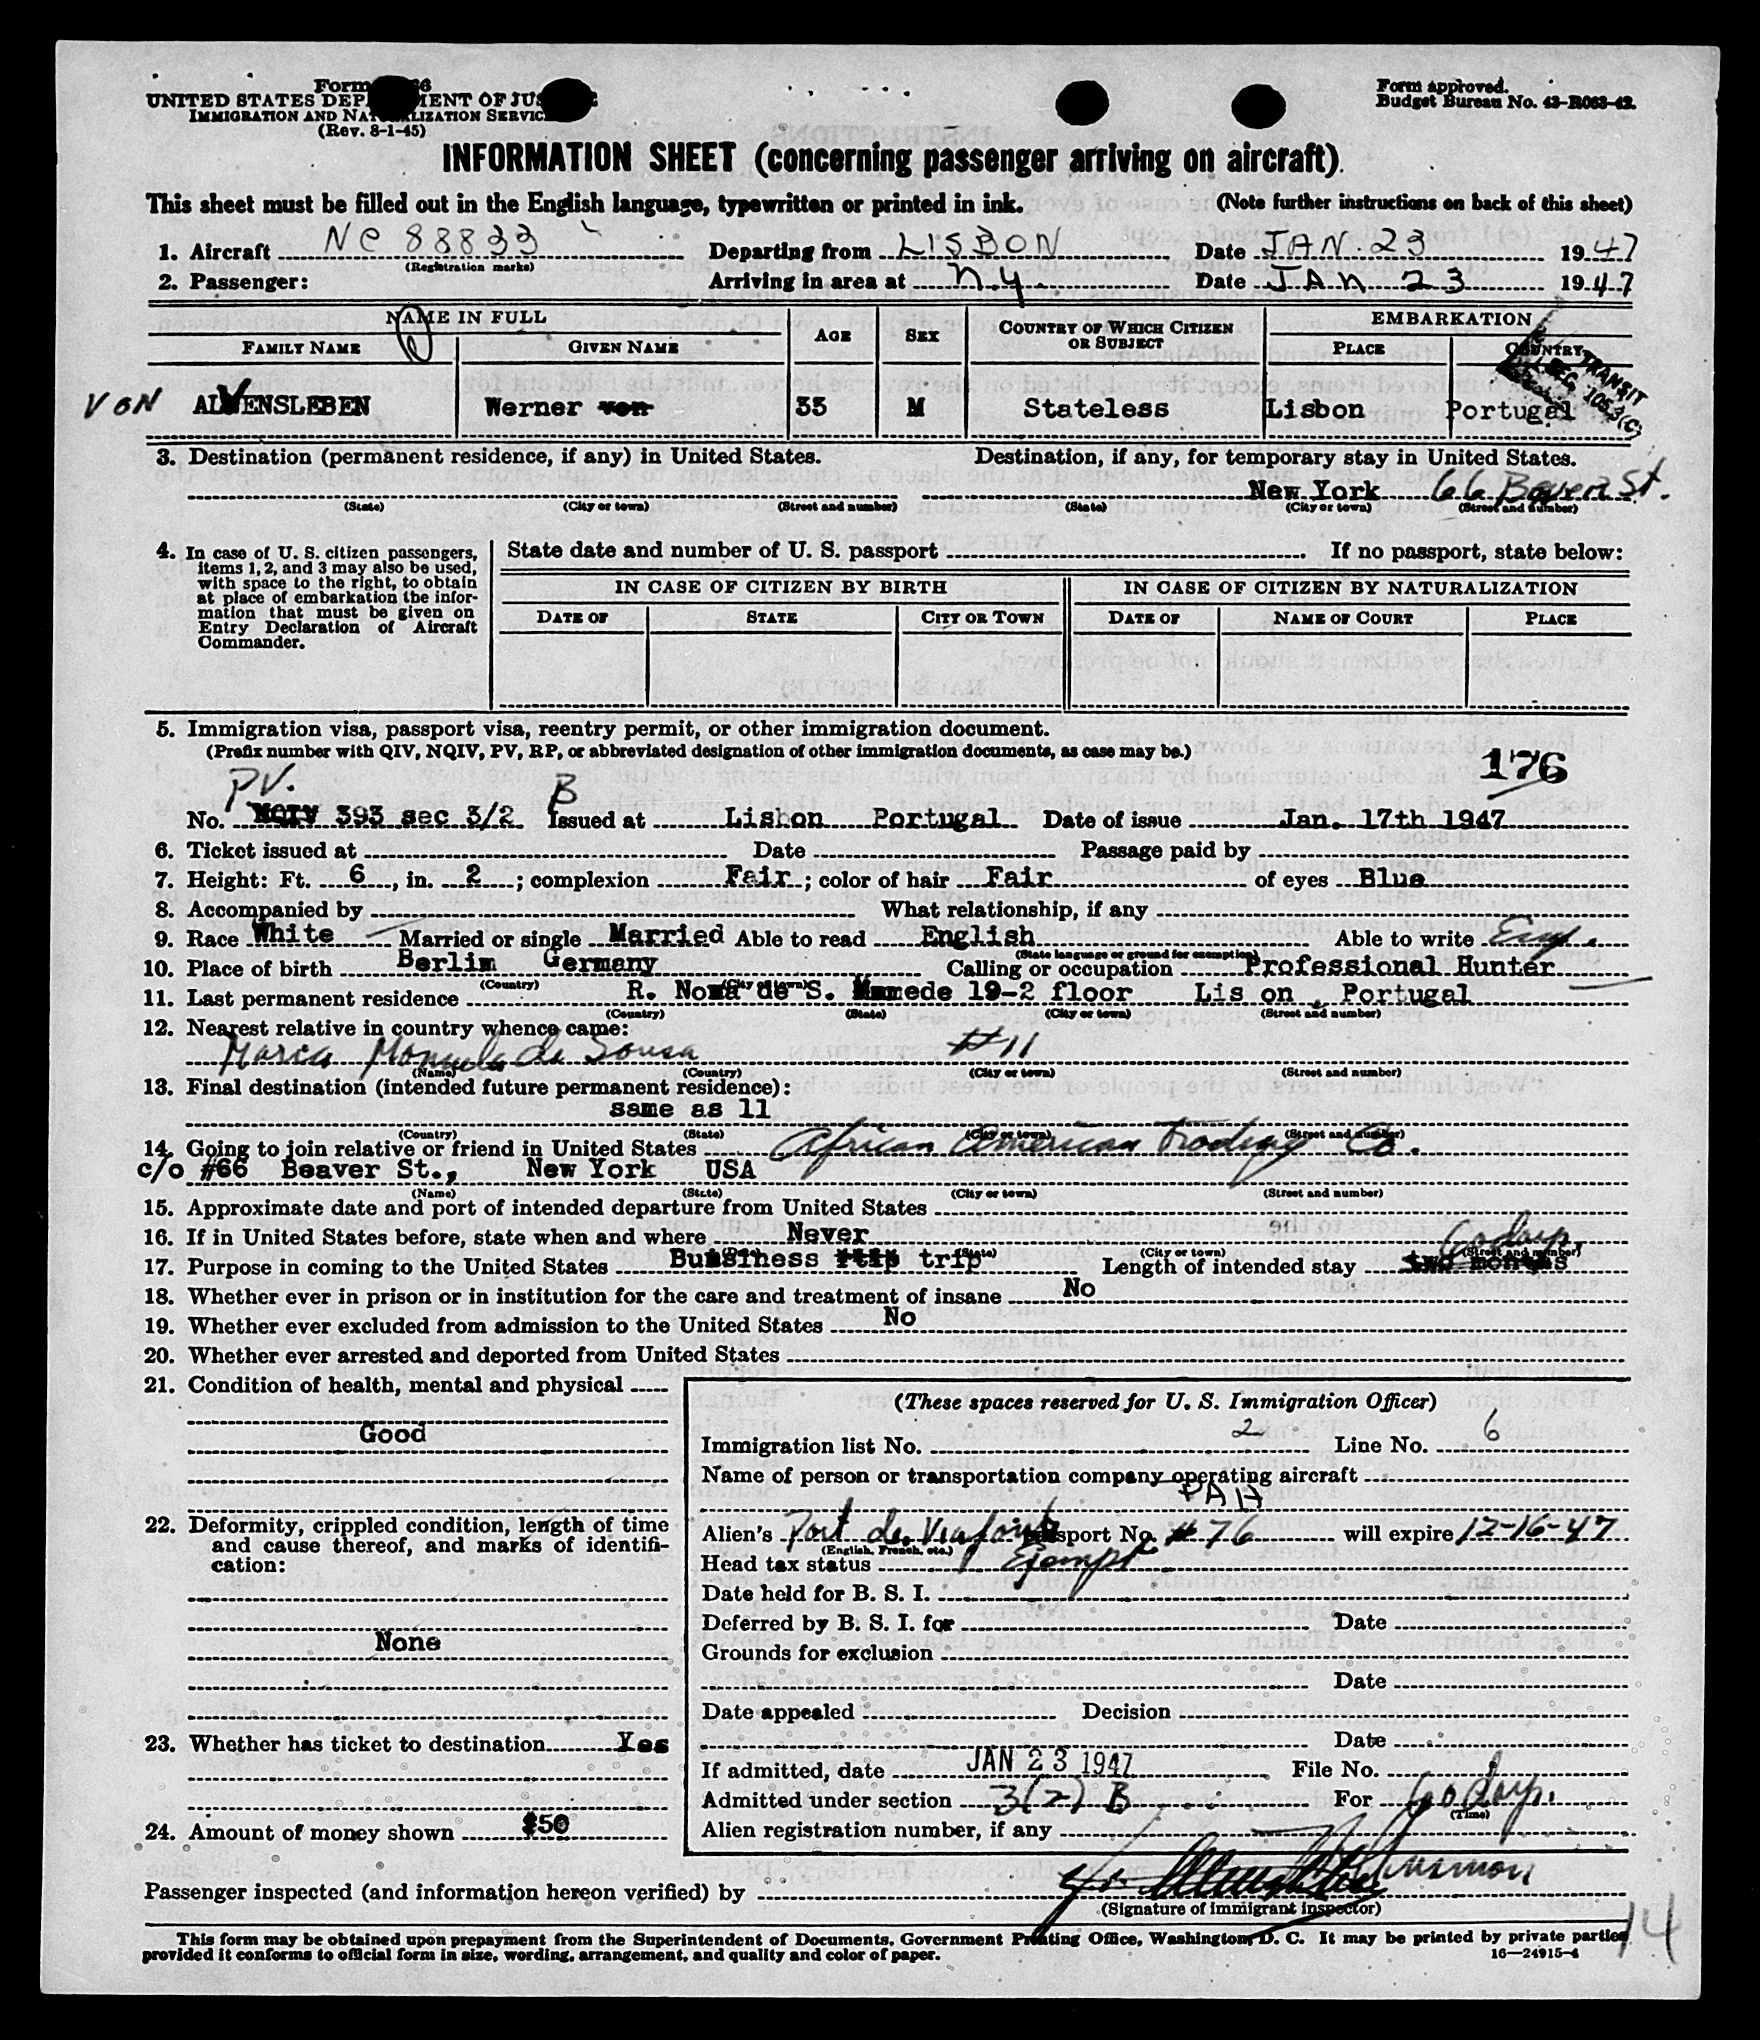 Form 66
UNITED STATES DEP MENT OF JUS
IMMIGRATION AND NAT LIZATION SERVIC
(Rev. 8-1-45)
Form approved.
Budget Bureau No. 43-R063-42.
INFORMATION SHEET (concerning passenger arriving on aircraft).
This sheet must be filled out in the English language, typewritten or printed in ink. (Note further instructions on back of this sheet)
1. Aircraft NC 88833 Departing from LISBON Date JAN. 23 1947
(Registration marks)
2. Passenger: Arriving in area at N.Y. Date JAN 23 1947
NAME IN FULL
FAMILY NAME GIVEN NAME
AGE
SEX
COUNTRY OF WHICH CITIZEN OR SUBJECT
EMBARKATION
PLACE COUNTRY
TRANSIT
SEC. 105.3(C)
VON ALVENSLEBEN Werner von 33 M Stateless Lisbon Portugal
3. Destination (permanent residence, if any) in United States. Destination, if any, for temporary stay in United States.
New York 66 Baver St.
(State) (City or town) (Street and number) (State) (City or town) (Street and number)
4. In case of U. S. citizen passengers, items 1, 2, and 3 may also be used, with space to the right, to obtain at place of embarkation the information that must be given on Entry Declaration of Aircraft Commander.
State date and number of U. S. passport If no passport, state below:
IN CASE OF CITIZEN BY BIRTH IN CASE OF CITIZEN BY NATURALIZATION
DATE OF STATE CITY OR TOWN DATE OF NAME OF COURT PLACE
5. Immigration visa, passport visa, reentry permit, or other immigration document.
(Prefix number with QIV, NQIV, PV, RP, or abbreviated designation of other immigration documents, as case may be.)
176
PV. B
No. 393 sec 3/2 Issued at Lisbon Portugal Date of issue Jan. 17th 1947
6. Ticket issued at Date Passage paid by
7. Height: Ft. 6, in. 2; complexion Fair; color of hair Fair of eyes Blue
8. Accompanied by What relationship, if any
9. Race White Married or single Married Able to read English Able to write Eng.
(State language or ground for exemption)
10. Place of birth Berlim Germany Calling or occupation Professional Hunter
(Country) (City or town)
11. Last permanent residence R. Nova de S. Mamede 19-2 floor Lis on , Portugal
(Country) (State) (City or town) (Street and number)
12. Nearest relative in country whence came:
Maria Manuela de Sousa #11
(Name) (Country) (City or town) (Street and number)
13. Final destination (intended future permanent residence):
same as 11
(Country) (State) (City or town) (Street and number)
14. Going to join relative or friend in United States African American Trading Co.
c/o #66 Beaver St., New York USA
(Name) (State) (City or town) (Street and number)
15. Approximate date and port of intended departure from United States
16. If in United States before, state when and where Never
(State) (City or town) (Street and number)
60 days.
17. Purpose in coming to the United States Bussihess trip Length of intended stay two months
18. Whether ever in prison or in institution for the care and treatment of insane No
19. Whether ever excluded from admission to the United States No
20. Whether ever arrested and deported from United States
21. Condition of health, mental and physical
Good
22. Deformity, crippled condition, length of time and cause thereof, and marks of identification:
None
23. Whether has ticket to destination Yes
24. Amount of money shown $50
(These spaces reserved for U. S. Immigration Officer)
Immigration list No. 2 Line No. 6
Name of person or transportation company operating aircraft
PAA
Alien's Port. de Viajante passport No. #76 will expire 12-16-47
(English, French, etc.)
Head tax status Exempt
Date held for B. S. I.
Deferred by B. S. I. for Date
Grounds for exclusion
Date
Date appealed Decision
Date
If admitted, date JAN 23 1947 File No.
Admitted under section 3(2) B For 60 days.
(Time)
Alien registration number, if any
Passenger inspected (and information hereon verified) by
(Signature of immigrant inspector)
14
This form may be obtained upon prepayment from the Superintendent of Documents, Government Printing Office, Washington, D. C. It may be printed by private parties
provided it conforms to official form in size, wording, arrangement, and quality and color of paper. 16—24915-4